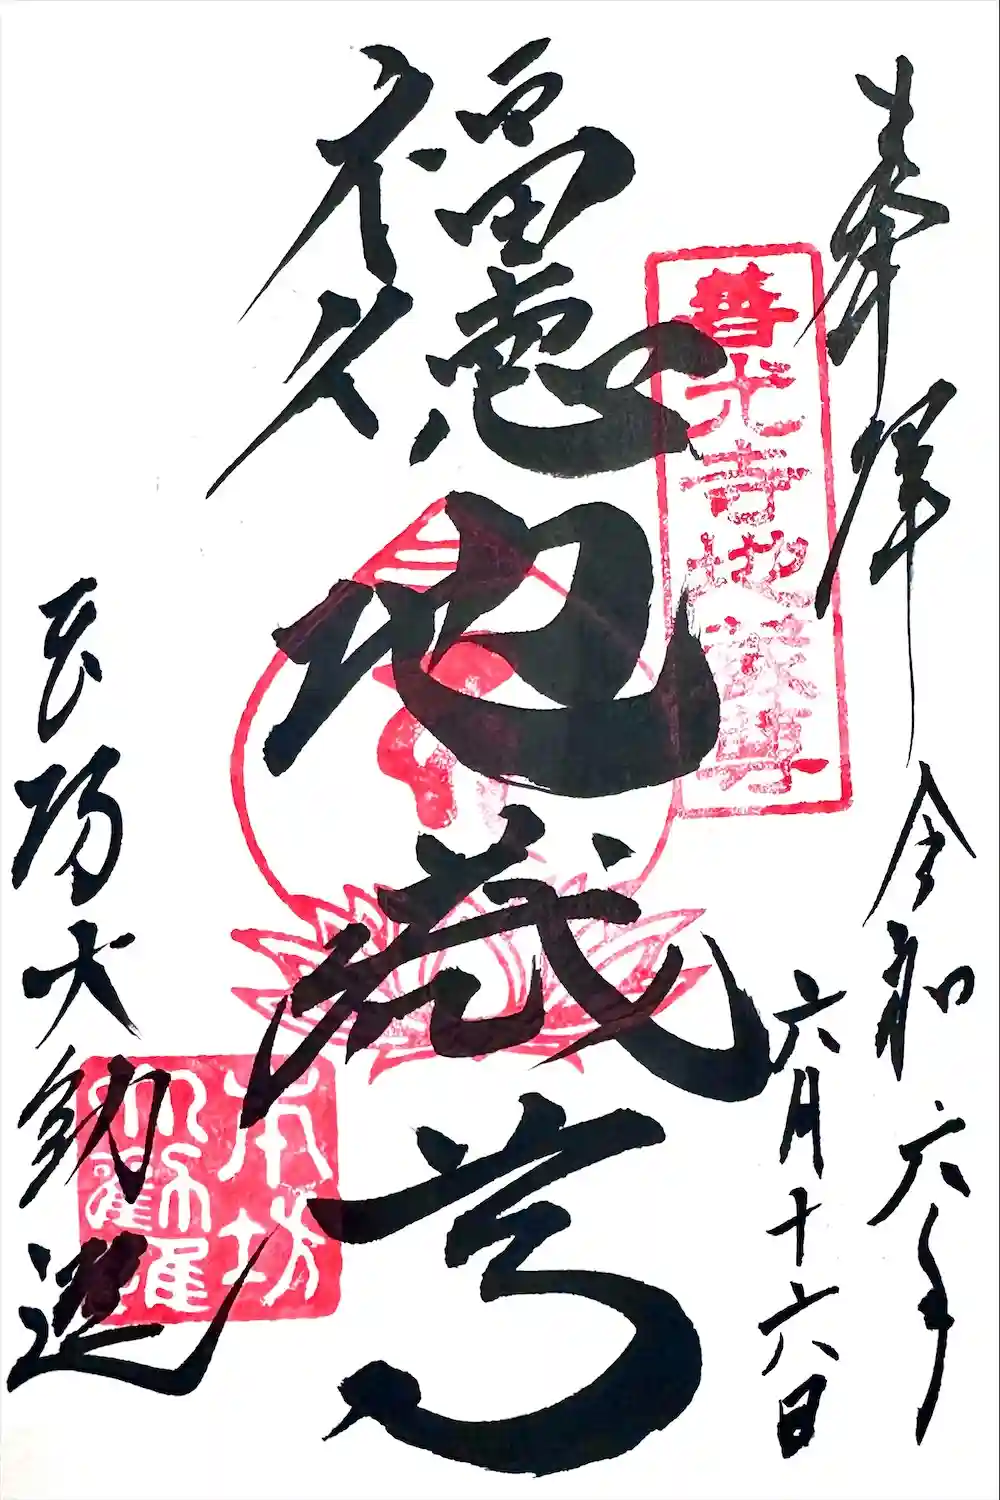 奉拝
令和六年
六月十六日
善光寺地蔵尊
福徳地蔵尊
本坊大勧進
本坊
大勧進